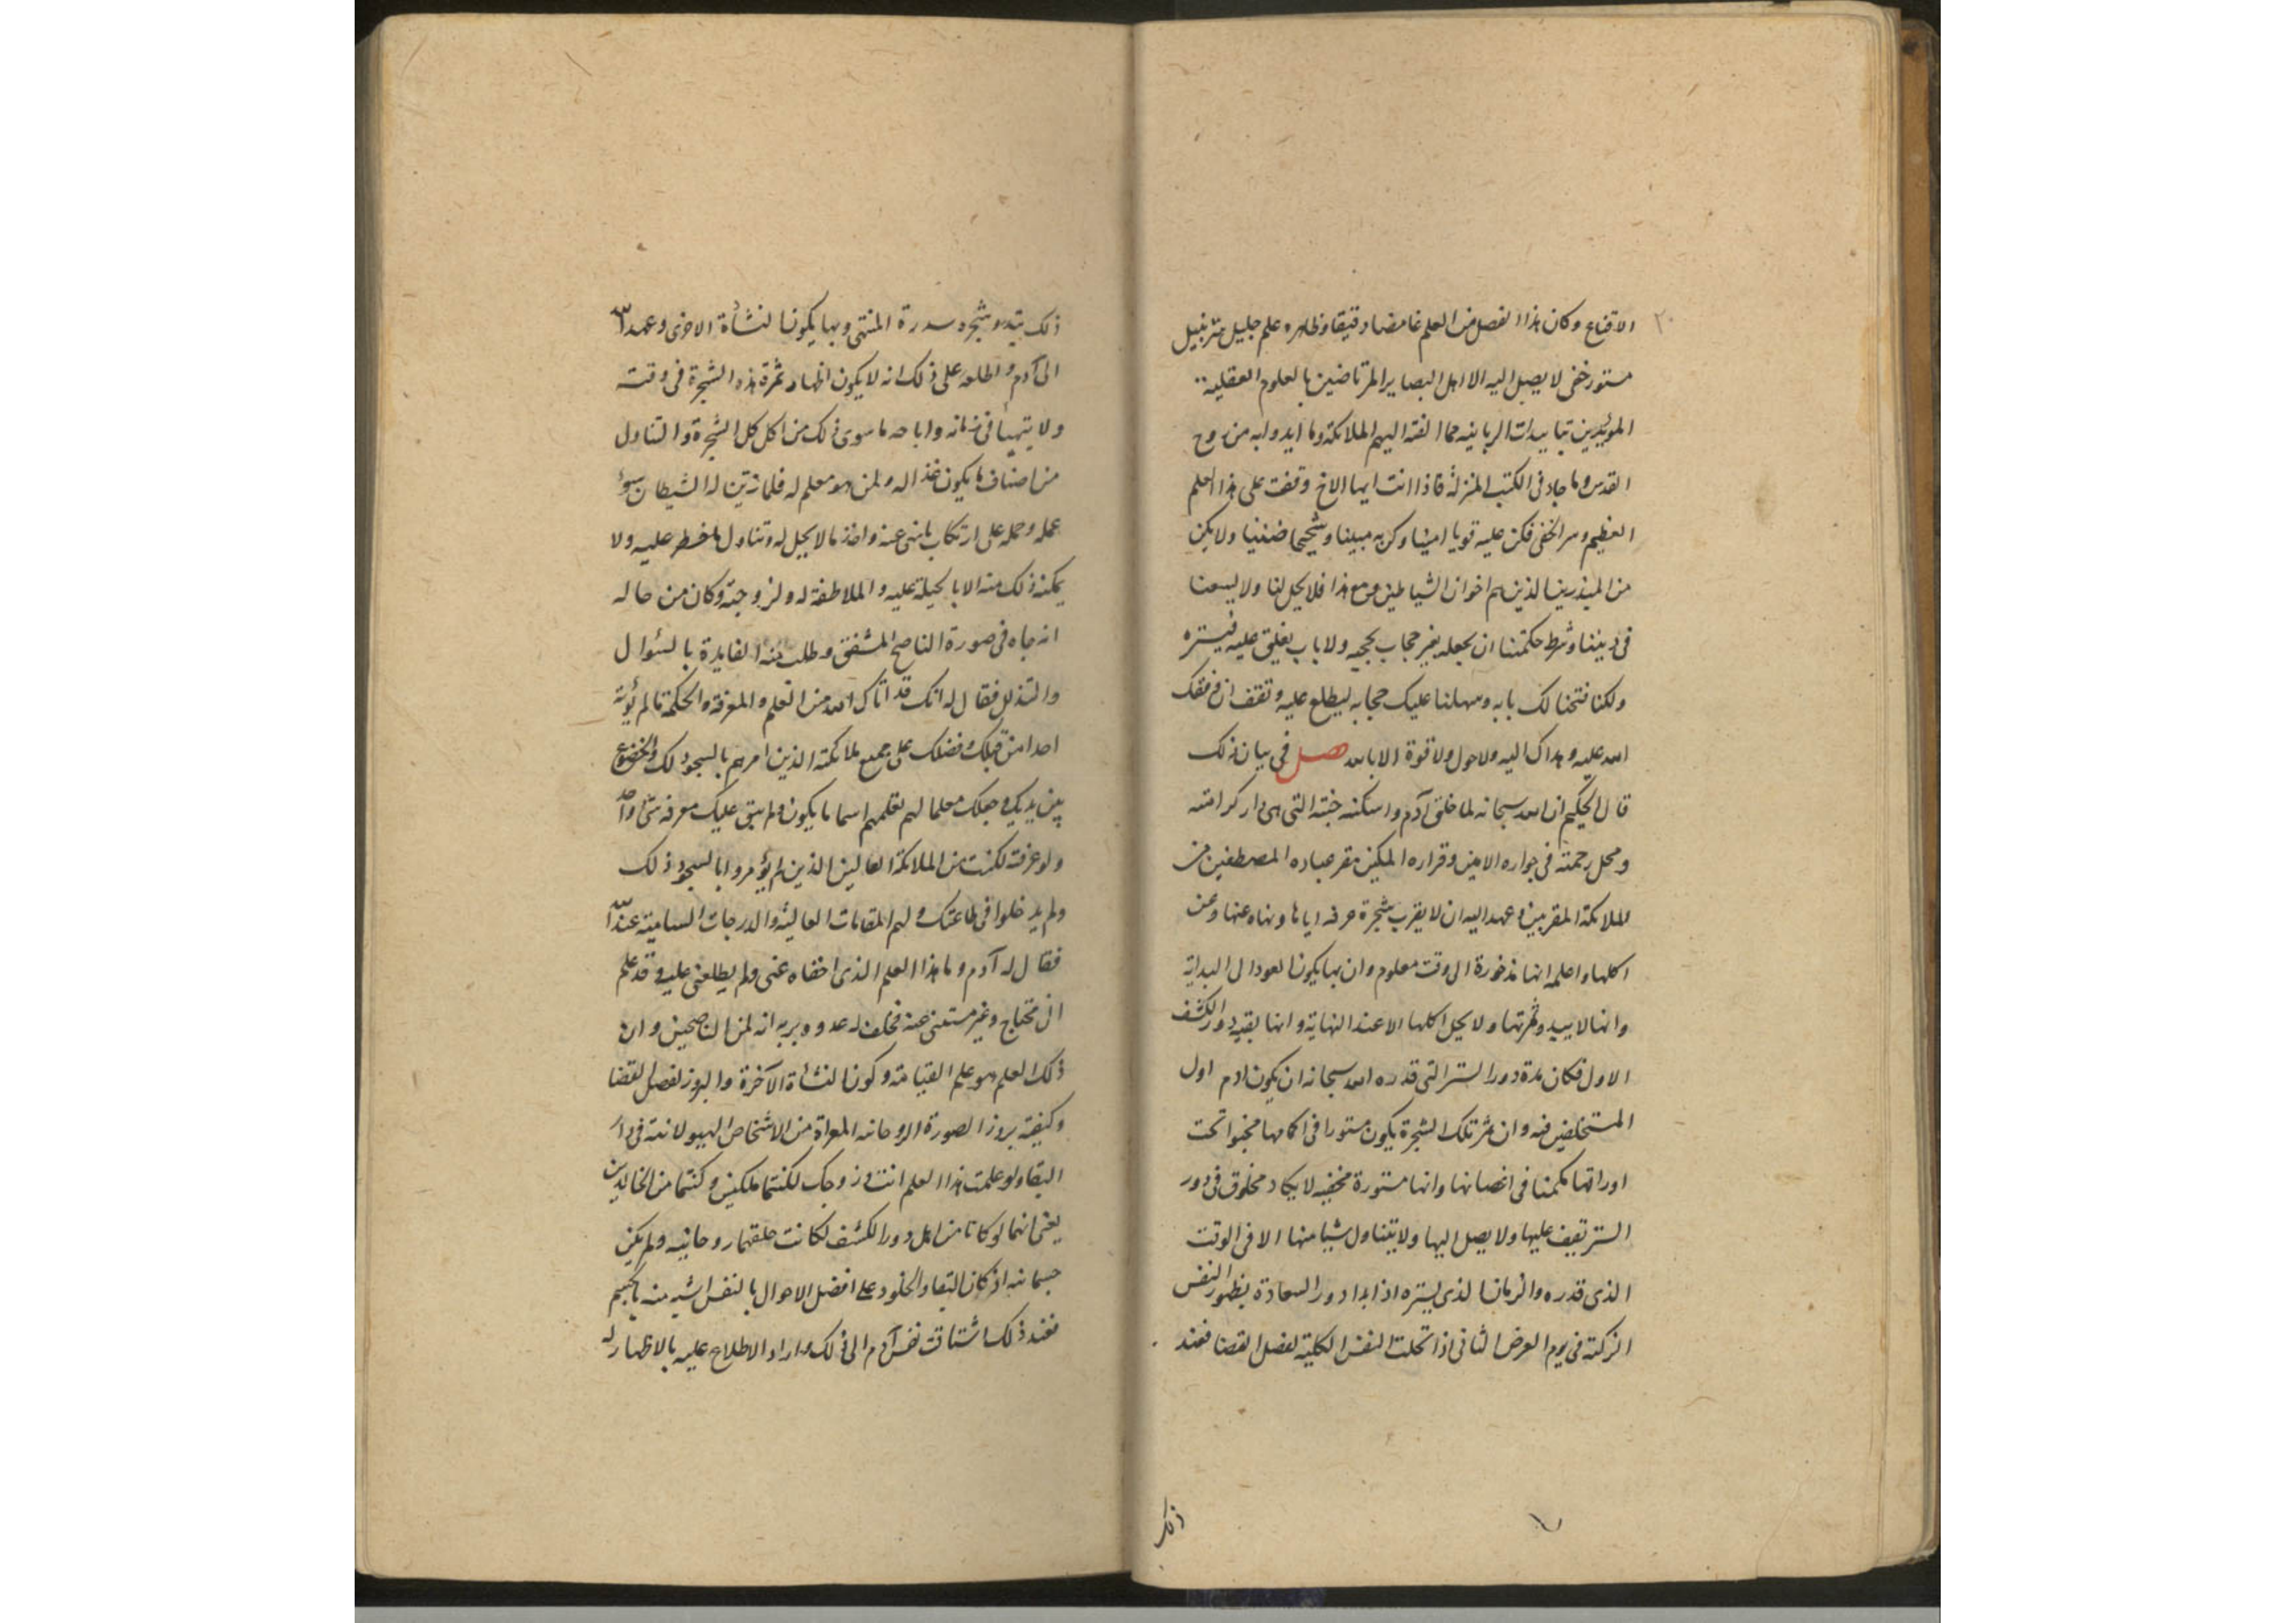 ٢٠
الاقناع وكان هذا الفصل من العلم غامضا دقيقا وظاهره علم جليل
مستور خفي لا يصل اليه الا اهل البصاير المرتاضين بالعلوم العقلية
المويدين بتاييدات الربانيه مما القته اليهم الملائكة وما ايدوا به من روح
القدس وما جاء في الكتب المنزلة فاذا انت ايها الاخ وقفت على هذا العلم
العظيم وسر الخفي فكن عليه قويا امينا وكن به مبينا وشحيحا ضنينا ولا يكن
من المبذرين الذين هم اخوان الشياطين ومع هذا فلا يحل لنا ولا يسعنا
في ديننا وشرط حكمتنا ان نجعله بغير حجاب يحجبه ولا باب يغلق عليه فيستره
ولكنا فتحنا لك بابه وسهلنا عليك حجابه ليطلع عليه وتقف ان وفقك
الله عليه وهداك اليه ولا حول ولا قوة الا بالله فصل في بيان ذلك
قال الحكيم ان الله سبحانه لما خلق آدم واسكنه جنته التى هى دار كرامته
ومحل رحمته في جواره الامين وقراره المكين مقر عباده المصطفين من
الملائكة المقربين وعهد اليه ان لا يقرب شجرة عرفه اياها ونهاه عنها وعن
اكلها واعلمه انها مذخورة الى وقت معلوم وان بها يكون العود الى البداية
وانها لا يبدو ثمرتها ولا يحل اكلها الا عند النهاية وانها بقية دور الكشف
الاول فكان مدة دور الستر التى قدره الله سبحانه ان يكون ادم اول
المستخلفين فيه وان ثمر تلك الشجرة يكون مستورا في اكمامها مخبوا تحت
اوراقها مكمنا في اغصانها وانها مستورة مخفيه لا يكاد مخلوق في دور
الستر تقيف عليها ولا يصل اليها ولا يتناول شيا منها الا في الوقت
الذى قدره والزمان الذى يستره اذا بدا دور السعادة بظهور النفس
الزكية في يوم العرض الثاني اذا تجلت النفس الكلية لفصل القضا فعند
ذلك
ذلك يبدو شجره سدرة المنتهى وبها يكون النشأة الاخرى وعهد الله
الى آدم واطلعه على ذلك انه لا يكون اظهار ثمرة هذه الشجرة في وقته
ولا يتهيأ في زمانه واباحه ما سوى ذلك من اكل كل الشجرة والتناول
من اصناف ما يكون غذا له ولمن هو معلم له فلما زين له الشيطان سوء
عمله وحمله على ارتكاب ما نهى عنه واخذ ما لا يحل له وتناول ما خطر عليه ولا
يمكنه ذلك منه الا بالحيلة عليه والملاطفة له ولزوجته وكان من حاله
انه جاه في صورة الناصح المشفق وطلب منه الفايدة بالسوال
والتذلل فقال له انك قد اتاك الله من العلم والمعرفة والحكمة ما لم يؤته
احدا من قبلك وفضلك على جميع ملائكته الذين امرهم بالسجود لك والخضوع
بين يديك وجعلك معلما لهم تعلمهم اسما ما يكون ولم يبق عليك معرفه شئ واحد
ولو عرفته لكنت من الملائكة العالين الذين لم يؤمروا بالسجود ذلك
ولم يدخلوا في طاعتك ولهم المقامات العالية والدرجات السامية عند الله
فقال له آدم وما هذا العلم الذى اخفاه عنى ولم يطلعنى عليه وقد علم
انى محتاج وغير مستغنى عنه فحلف له عدوه بربه انه لمن الناصحين وان
ذلك العلم هو علم القيامة وكون النشأة الآخرة والبروز لفصل القضا
وكيفية بروز الصورة الروحانيه المعراة من الاشخاص الهيولانية في دار
البقا ولو علمت هذا العلم انت وزوجك لكنتما ملكين وكنتما من الخالدين
يعنى انهما لو كانا من اهل دور الكشف لكانت خلقتهما روحانيه ولم يكن
جسمانيه اذ كان البقا والخلود على افضل الاحوال بالنفس اشبه منه بالجسم
فعند ذلك اشتاقت نفس آدم الى ذلك واراد الاطلاع عليه بالاظهار له